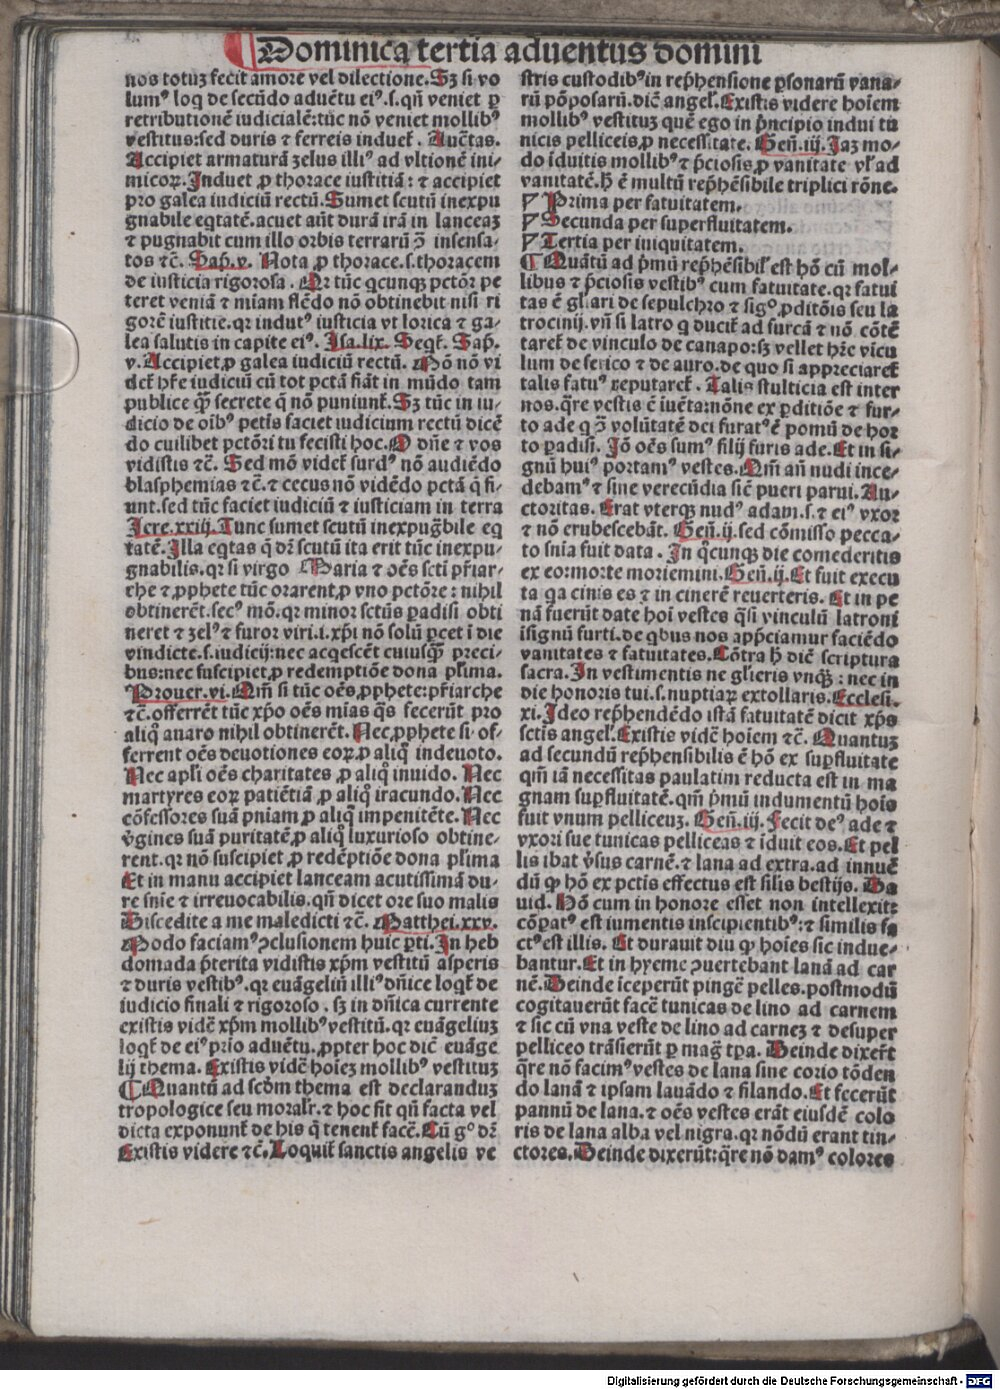 Dominica tertia aduentus domini
nos totuʒ fecit amore vel dilectione. Sʒ si vo
lumꝰ loq̄ de secūdo aduētu eiꝰ.s.qñ veniet ꝑ
retributionē iudicialē:tūc nō veniet mollibꝰ
vestitus:sed duris ⁊ ferreis induet̄. Auctas.
Accipiet armaturā zelus illiꝰ ad vltionē ini-
micoꝝ. Induet ꝓ thorace iustitiā: ⁊ accipiet
pro galea iudiciū rectū. Sumet scutū inexpu
gnabile eqtatē.acuet aūt durā irā in lanceaʒ
⁊ pugnabit cum illo orbis terrarū ↄ̄ insensa-
tos ⁊c̄. Sap̄.v. Nota ꝓ thorace.s.thoracem
de iusticia rigorosa. Qꝛ tūc q̄cunqꝫ pctōr pe
teret veniā ⁊ miam flēdo nō obtinebit nisi ri
gorē iustitie.qꝛ indutꝰ iusticia vt lorica ⁊ ga-
lea salutis in capite eiꝰ. Isa.lix. Seqt̄. Sap̄.
v. Accipiet ꝓ galea iudiciū rectū. Mō nō vi
det̄ hr̄e iudiciū cū tot pctā fiāt in mūdo tam
publice qꝫ̄ secrete q̄ nō puniunt̄. Sʒ tūc in iu-
dicio de oībꝰ petis faciet iudicium rectū dicē
do cuilibet pctōri tu fecisti hoc. O dn̄e ⁊ vos
vidistis ⁊c̄. Sed mō videt̄ surdꝰ nō audiēdo
blasphemias ⁊c̄.⁊ cecus nō vidēdo pctā q̄ fi-
unt.sed tūc faciet iudiciū ⁊ iusticiam in terra
Jere.xxiij. Tunc sumet scutū inexpuḡbile eq
tatē. Illa eqtas q̄ dr̄ scutū ita erit tūc inexpu-
gnabilis.qꝛ si virgo Maria ⁊ oēs scti pr̄iar-
che ⁊ ꝓphete tūc orarent.ꝓ vno pctōre: nihil
obtinerēt.secꝰ mō.qꝛ minor sctūs ꝑadisi obti
neret ⁊ zelꝰ ⁊ furor viri.i.xp̄i nō solū ꝑcet ī die
vindicte.s.iudicij:nec acqescēt cuiusqꝫ̄ preci-
bus:nec suscipiet ꝓ redemptiōe dona pl̄ima.
Prouer.vi. Qm̄ si tūc oēs ꝓphete:pr̄iarche
⁊c̄.offerrēt tūc xp̄o oēs mīas q̄s fecerūt pro
aliq̊ auaro nihil obtinerēt. Nec ꝓphete si of-
ferrent oēs deuotiones eoꝝ ꝓ aliq̊ indeuoto.
Nec apl̄i oēs charitates ꝓ aliq̊ inuido. Nec
martyres eoꝝ patiētiā ꝓ aliq̊ iracundo. Nec
cōfessores suā pniam ꝓ aliq̊ impenitēte. Nec
v̄gines suā puritatē ꝓ aliq̊ luxurioso obtine-
rent.qꝛ nō suscipiet ꝓ redēptiōe dona pl̄ima
Et in manu accipiet lanceam acutissimā du-
re snīe ⁊ irreuocabilis.qñ dicet ore suo malis
Discedite a me maledicti ⁊c̄. Matthei.xxv.
Modo faciamꝰ ↄclusionem huic ꝑti. In heb
domada p̄terita vidistis xp̄m vestitū asperis
⁊ duris vestibꝰ.qꝛ euāgeliū illiꝰ dn̄ice loqt̄ de
iudicio finali ⁊ rigoroso. sʒ in dn̄ica currente
existis vidē xp̄m mollibꝰ vestitū.qꝛ euāgeliuʒ
loqt̄ de eiꝰ prio aduētu.ꝓpter hoc dic̄ euāge
lij thema. Existis vidē hoīeʒ mollibꝰ vestituʒ
¶ Quantū ad scd̄m thema est declaranduʒ
tropologice seu moralr̄.⁊ hoc fit qñ facta vel
dicta exponunt̄ de his q̄ tenent̄ facē. Cū gͦ dr̄
Existis videre ⁊c̄. Loquit̄ sanctis angelis ve
stris custodibꝰ in rep̄hensione ꝑsonarū vana-
rū pōposarū.dic̄ angel̄. Existis videre hoīem
mollibꝰ vestituʒ quē ego in p̄ncipio indui tu
nicis pelliceis ꝓ necessitate. Gen̄.iij. Jaʒ mo-
do īduitis mollibꝰ ⁊ p̄ciosis ꝓ vanitate vl̓ ad
vanitatē.h̄ ē multū rep̄hēsibile triplici rōne.
Prima per fatuitatem.
Secunda per superfluitatem.
Tertia per iniquitatem.
¶ Quātū ad p̄mū rep̄hēsibil̓ est hō cū mol-
libus ⁊ p̄ciosis vestibꝰ cum fatuitate.qꝛ fatui
tas ē gl̄iari de sepulchro ⁊ sigͦ ꝓditōis seu la
trocinij.vn̄ si latro q̄ ducit̄ ad surcā ⁊ nō cōtē
taret̄ de vinculo de canapo:sʒ vellet hr̄e vīcu
lum de serico ⁊ de auro.de quo si appreciaret̄
talis fatuꝰ reputaret̄. Talis stulticia est inter
nos.q̄re vestis ē iuēta:nōne ex ꝑditiōe ⁊ fur-
to ade q ↄ̄ volūtatē dei furatꝰ ē pomū de hor
to ꝑadisi. Jō oēs sumꝰ filij furis ade. Et in si-
gnū huiꝰ portamꝰ vestes. Qm̄ an̄ nudi ince-
debamꝰ ⁊ sine verecūdia sic̄ pueri parui. Au-
ctoritas. Erat vterqꝫ nudꝰ adam.s.⁊ eiꝰ vxor
⁊ nō erubescebāt. Gen̄.ij.sed cōmisso pecca-
to snīa fuit data. In q̊cunqꝫ die comederitis
ex eo:morte moriemini. Gen̄.ij. Et fuit execu
ta qa cinis es ⁊ in cinerē reuerteris. Et in pe
nā fuerūt date hoī vestes q̄si vinculū latroni
īsignū furti.de qbus nos app̄ciamur faciēdo
vanitates ⁊ fatuitates. Cōtra h̄ dic̄ scriptura
sacra. In vestimentis ne gl̄ieris vnqꝫ̄: nec in
die honoris tui.s.nuptiaꝝ extollaris. Ecclesi.
xi. Ideo rep̄hendēdo istā fatuitatē dicit xp̄s
sctis angel̄. Existis vidē hoīem ⁊c̄. Quantuʒ
ad secundū rep̄hensibilis ē hō ex suꝑfluitate
qm̄ iā necessitas paulatim reducta est in ma
gnam suꝑfluitatē.qm̄ p̄mū indumentū hoīs
fuit vnum pelliceuʒ. Gen̄.iij. Fecit deꝰ ade ⁊
vxori sue tunicas pelliceas ⁊ īduit eos. Et pel
lis ibat v̄sus carnē.⁊ lana ad extra.ad innuē
dū ꝙ hō ex pctis effectus est silis bestijs. Da
uid. Hō cum in honore esset non intellexit:
cōꝑatꝰ est iumentis insipientibꝰ:⁊ similis fa
ctꝰ est illis. Et durauit diu ꝙ hoīes sic indue-
bantur. Et in hyeme ↄuertebant lanā ad car
nē. Deinde īceperūt pingē pelles.postmodū
cogitauerūt facē tunicas de lino ad carnem
⁊ sic cū vna veste de lino ad carneʒ ⁊ desuper
pelliceo trāsierūt ꝑ maḡ tꝑa. Deinde dixer̄t
q̄re nō facimꝰ vestes de lana sine corio tōden
do lanā ⁊ ipsam lauādo ⁊ filando. Et fecerūt
pannū de lana.⁊ oēs vestes erāt eiusdē colo
ris de lana alba vel nigra.qꝛ nōdū erant tin-
ctores. Deinde dixerūt:q̄re nō damꝰ colores
Digitalisierung gefördert durch die Deutsche Forschungsgemeinschaft - DFG